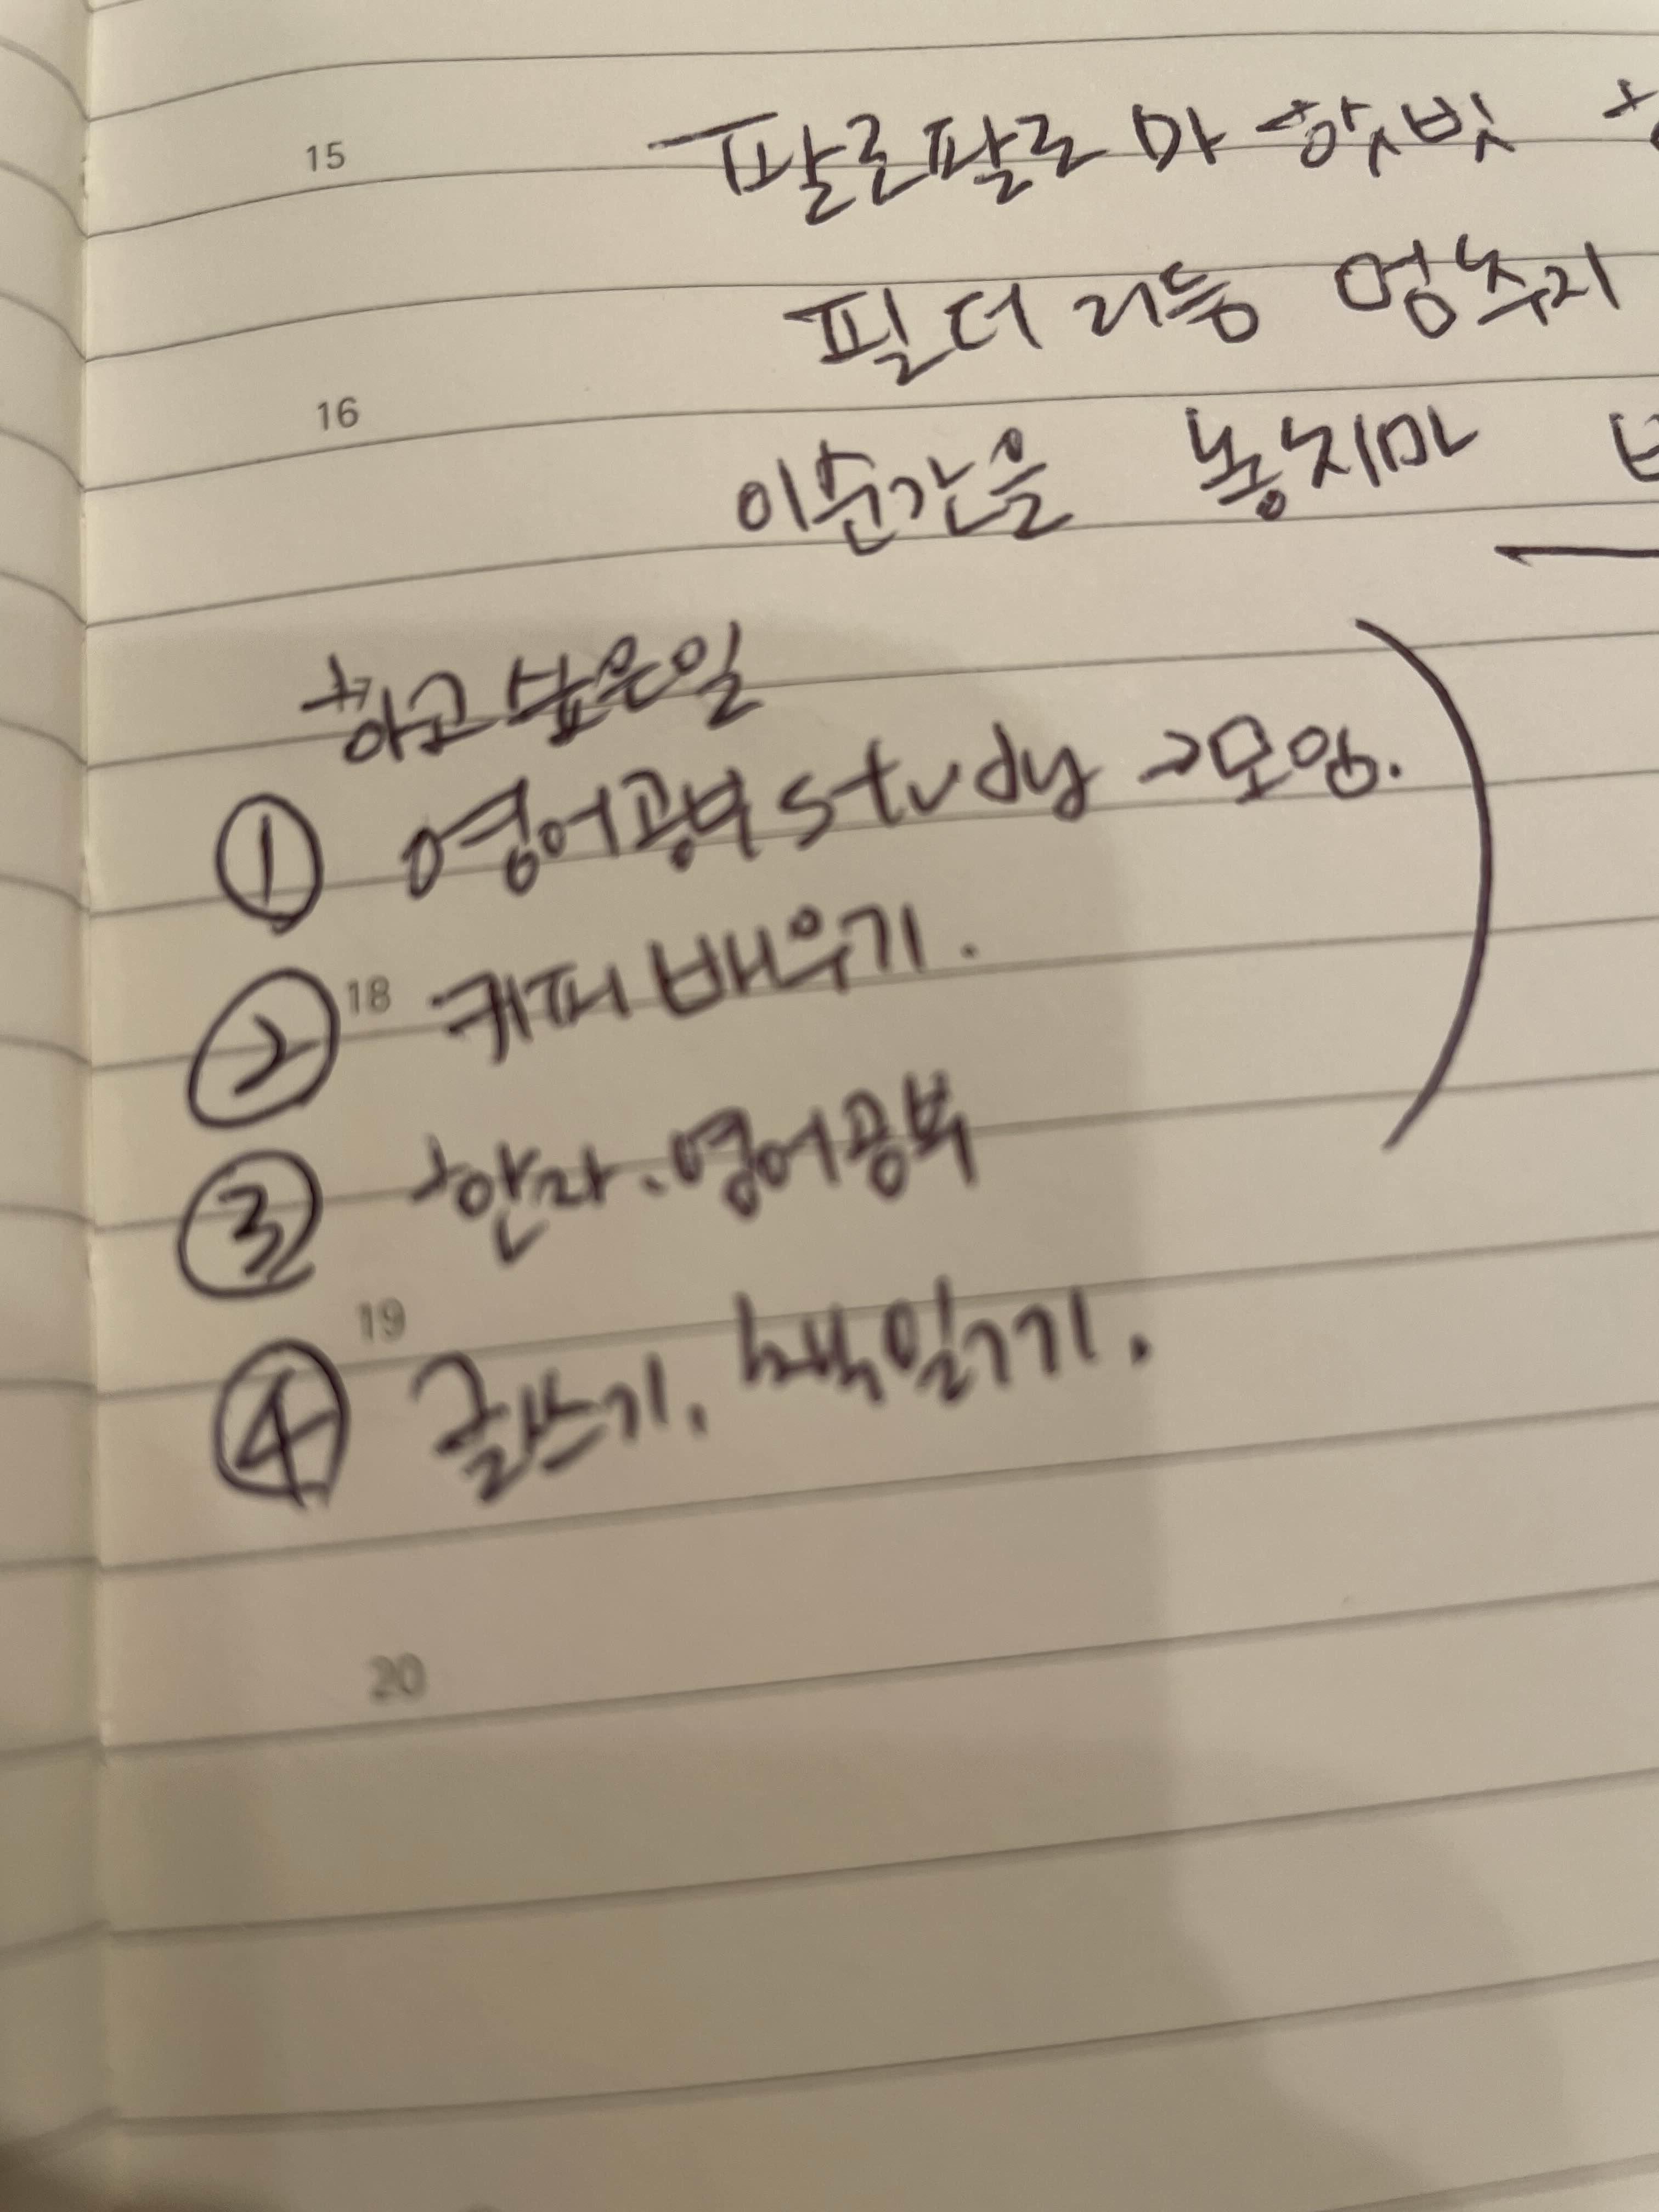 15
팔로팔로 마 햇빛
필더리듬 엉
16
이순간을 놓지마
하고 싶은일
① 영어공부 study 모임.
18
② 커피 배우기.
③ 한자.영어공부
19
④ 글쓰기, 책 읽기.
20